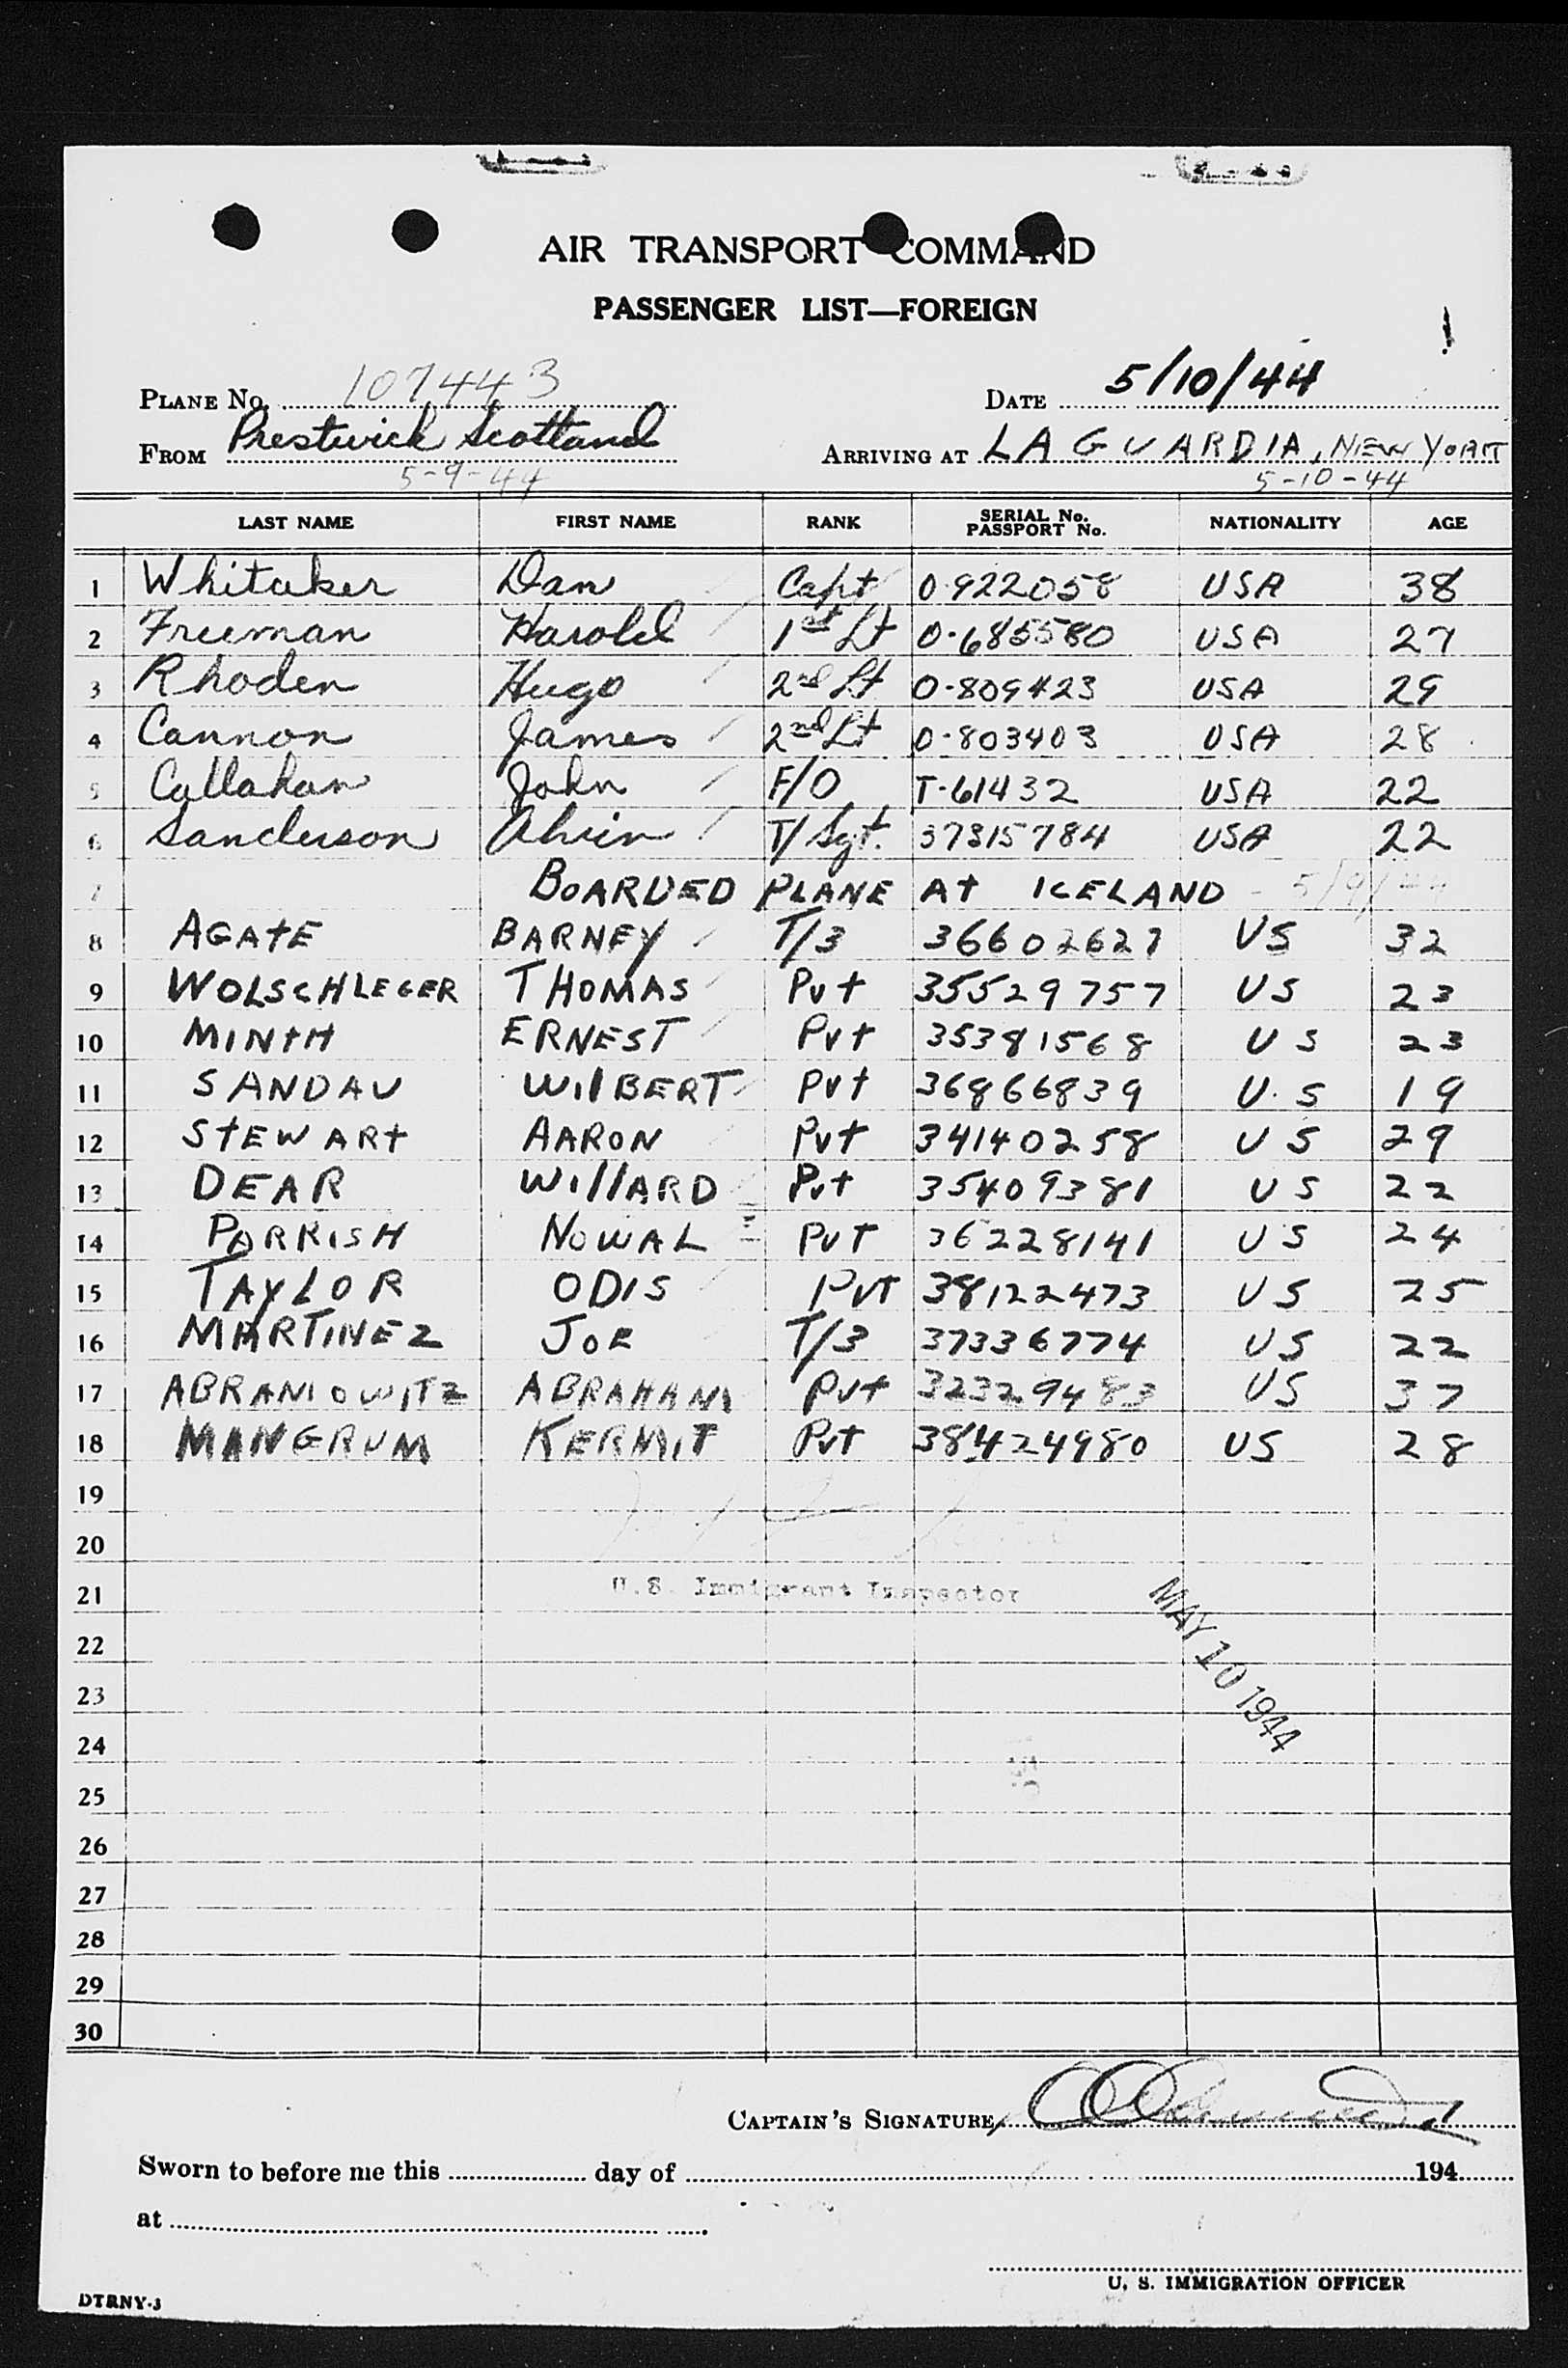 AIR TRANSPORT COMMAND
PASSENGER LIST—FOREIGN
PLANE No. 107443 DATE 5/10/44
FROM Prestwick Scotland ARRIVING AT LA GUARDIA, NEW YORK
5-9-44 5-10-44
LAST NAME FIRST NAME RANK SERIAL No. PASSPORT No. NATIONALITY AGE
1 Whitaker Dan Capt O-922058 USA 38
2 Freeman Harold 1st Lt O-685580 USA 27
3 Rhoden Hugo 2nd Lt O-809423 USA 29
4 Cannon James 2nd Lt O-803403 USA 28
5 Callahan John F/O T-61432 USA 22
6 Sanderson Alvin T/Sgt. 37315784 USA 22
7 BOARDED PLANE AT ICELAND - 5/9/44
8 AGATE BARNEY T/3 36602627 US 32
9 WOLSCHLEGER THOMAS Pvt 35529757 US 23
10 MINTH ERNEST Pvt 35381568 US 23
11 SANDAU WILBERT Pvt 36866839 U.S 19
12 STEWART AARON Pvt 34140258 US 29
13 DEAR WILLARD Pvt 35409381 US 22
14 PARRISH NOWAL Pvt 36228141 US 24
15 TAYLOR ODIS Pvt 38122473 US 25
16 MARTINEZ JOE T/3 37336774 US 22
17 ABRAMOWITZ ABRAHAM Pvt 32329483 US 37
18 MANGRUM KERMIT Pvt 38424980 US 28
19
20
21 U.S. Immigrant Inspector
MAY 10 1944
22
23
24
25
26
27
28
29
30
CAPTAIN'S SIGNATURE
Sworn to before me this day of 194
at
U. S. IMMIGRATION OFFICER
DTRNY-3